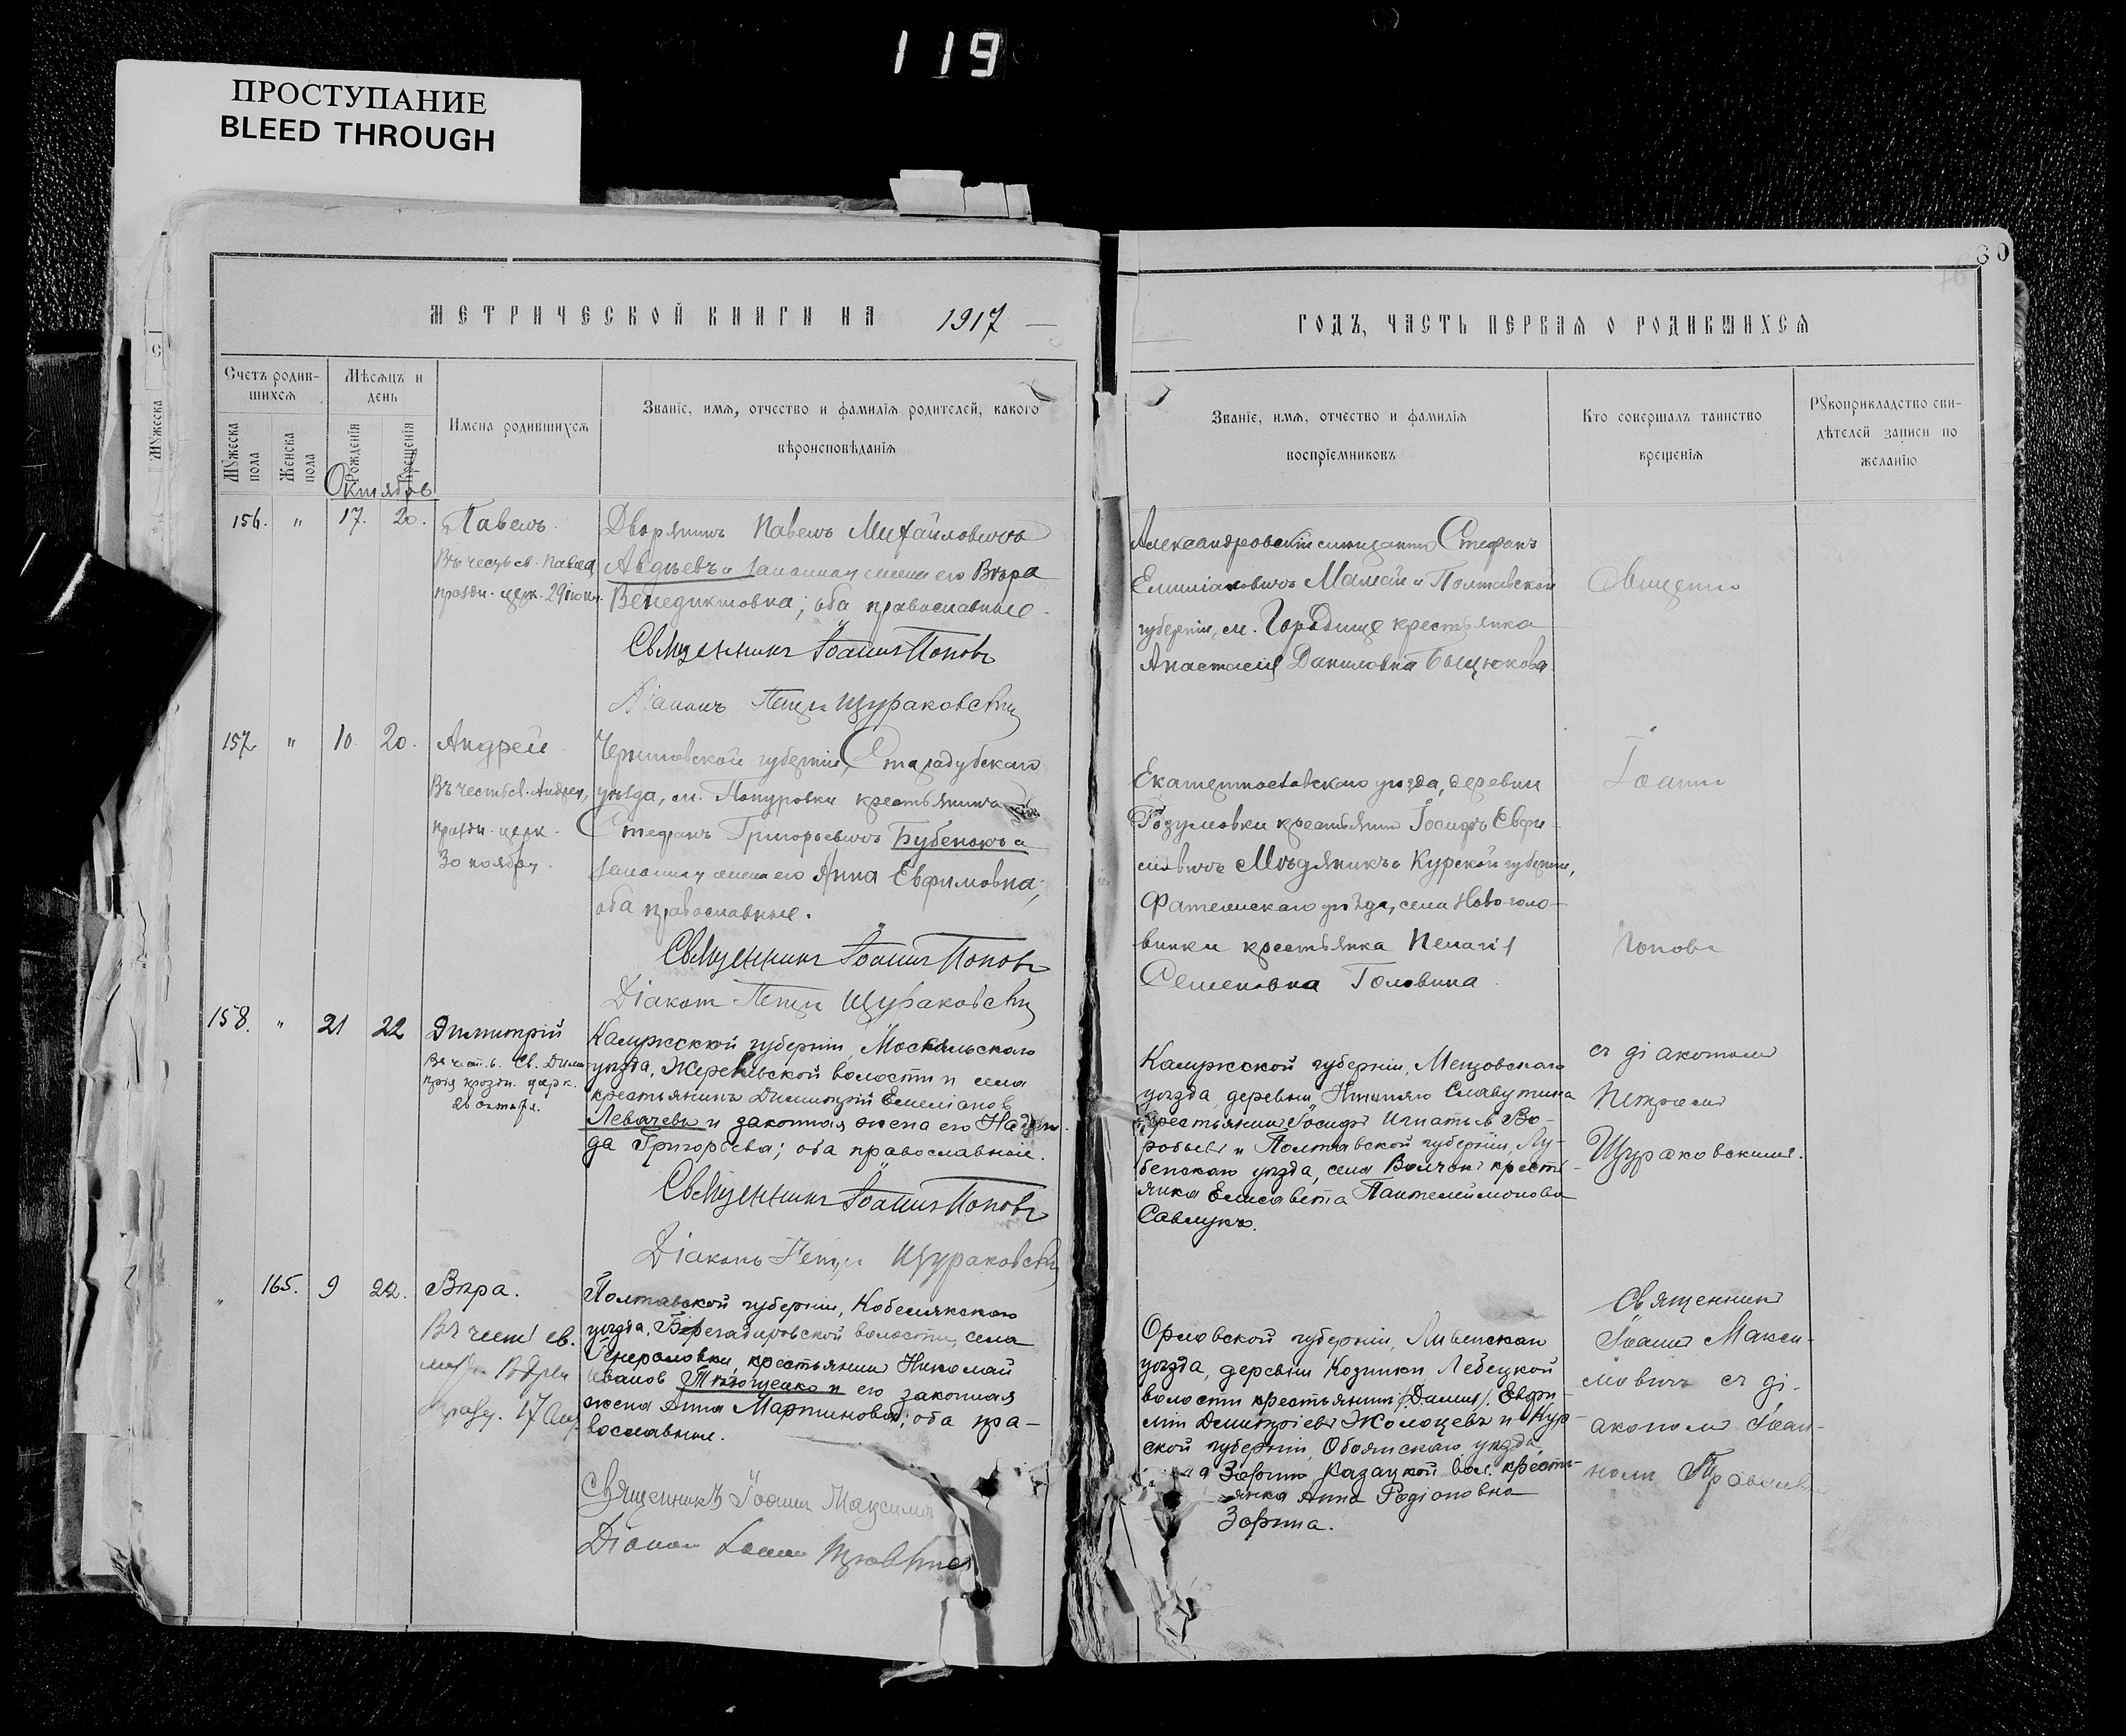 119
ПРОСТУПАНИЕ
BLEED THROUGH
60
МЕТРИЧЕСКОЙ КНИГИ НА 1917
ГОДЪ, ЧАСТЬ ПЕРВАЯ О РОДИВШИХСЯ
Счетъ родив-
шихся
Мѣсяцъ и
день
Мужеска
пола
Женска
пола
Рожденія
Крещенія
Имена родившихся
Званіе, имя, отчество и фамилія родителей, какого
вѣроисповѣданія
Званіе, имя, отчество и фамилія
воспріемниковъ
Кто совершалъ таинство
крещенія
Рукоприкладство сви-
дѣтелей записи по
желанію
Мужеска
Октябрь
156. " 17. 20. Павелъ
Въ честь св. Павла,
праздн. церк. 29 іюня.
Дворянинъ Павелъ Михайловичъ
Авдѣевъ и законная жена его Вѣра
Венедиктовна; оба православные.
Священникъ Іоаннъ Поповъ
Діаконъ Петръ Щураковскій
Стефанъ
Емиліановичъ Мамай и Полтавской
губерніи, м. Городище крестьянка
Анастасія Даниловна
Священно
157. " 10. 20. Андрей
Въ честь св. Андрея,
праздн. церк.
30 ноября.
Черниговской губерніи, Стародубскаго
уѣзда, м. Понуровки крестьянинъ
Стефанъ Григорьевичъ Бубенокъ и
законная жена его Анна Евфимовна;
оба православные.
Священникъ Іоаннъ Поповъ
Діаконъ Петръ Щураковскій
уѣзда, деревни
крестьянинъ Іосифъ Евфи-
мовичъ Мѣдяникъ и Курской губерніи,
Фатежскаго уѣзда, села Ново-голо-
винки крестьянка Пелагія
Семеновна Головина.
Іоаннъ
Поповъ
158. " 21 22 Димитрій
Въ честь Св. Дими-
трія праздн. церк.
26 октября.
Калужской губерніи, Мосальскаго
уѣзда, волости и села
крестьянинъ Димитрій Емеліановъ
Левачевъ и законная жена его Надеж-
да Григорьева; оба православные.
Священникъ Іоаннъ Поповъ
Діаконъ Петръ Щураковскій
Калужской губерніи, Мещовскаго
уѣзда, деревни
крестьянинъ Іосифъ Игнатьевъ Во-
робьевъ и Полтавской губерніи, Лу-
бенскаго уѣзда, села Волчокъ кресть-
янка Елисавета Пантелеимонова
Савлукъ.
съ діакономъ
Петромъ
Щураковскимъ.
" 165. 9 22. Вѣра.
Въ честь св.
Вѣры
празд. 17
Полтавской губерніи, Кобелякскаго
уѣзда, волости, села
Генераловки, крестьянинъ Николай
Ивановъ и его законная
жена Анна Мартинова; оба пра-
вославные.
Священникъ Іоаннъ Максимовичъ
Діаконъ
Орловской губерніи, Ливенскаго
уѣзда, деревни Козинки
волости крестьянинъ (Даніилъ) Евфи-
мій Димитріевъ Жолоцевъ и Кур-
ской губерніи, Обоянскаго уѣзда,
Зорино Казацкой вол. кресть-
янка Анна Родіоновна
Зорина.
Священникъ
Іоаннъ Макси-
мовичъ съ ді-
акономъ Іоан-
номъ